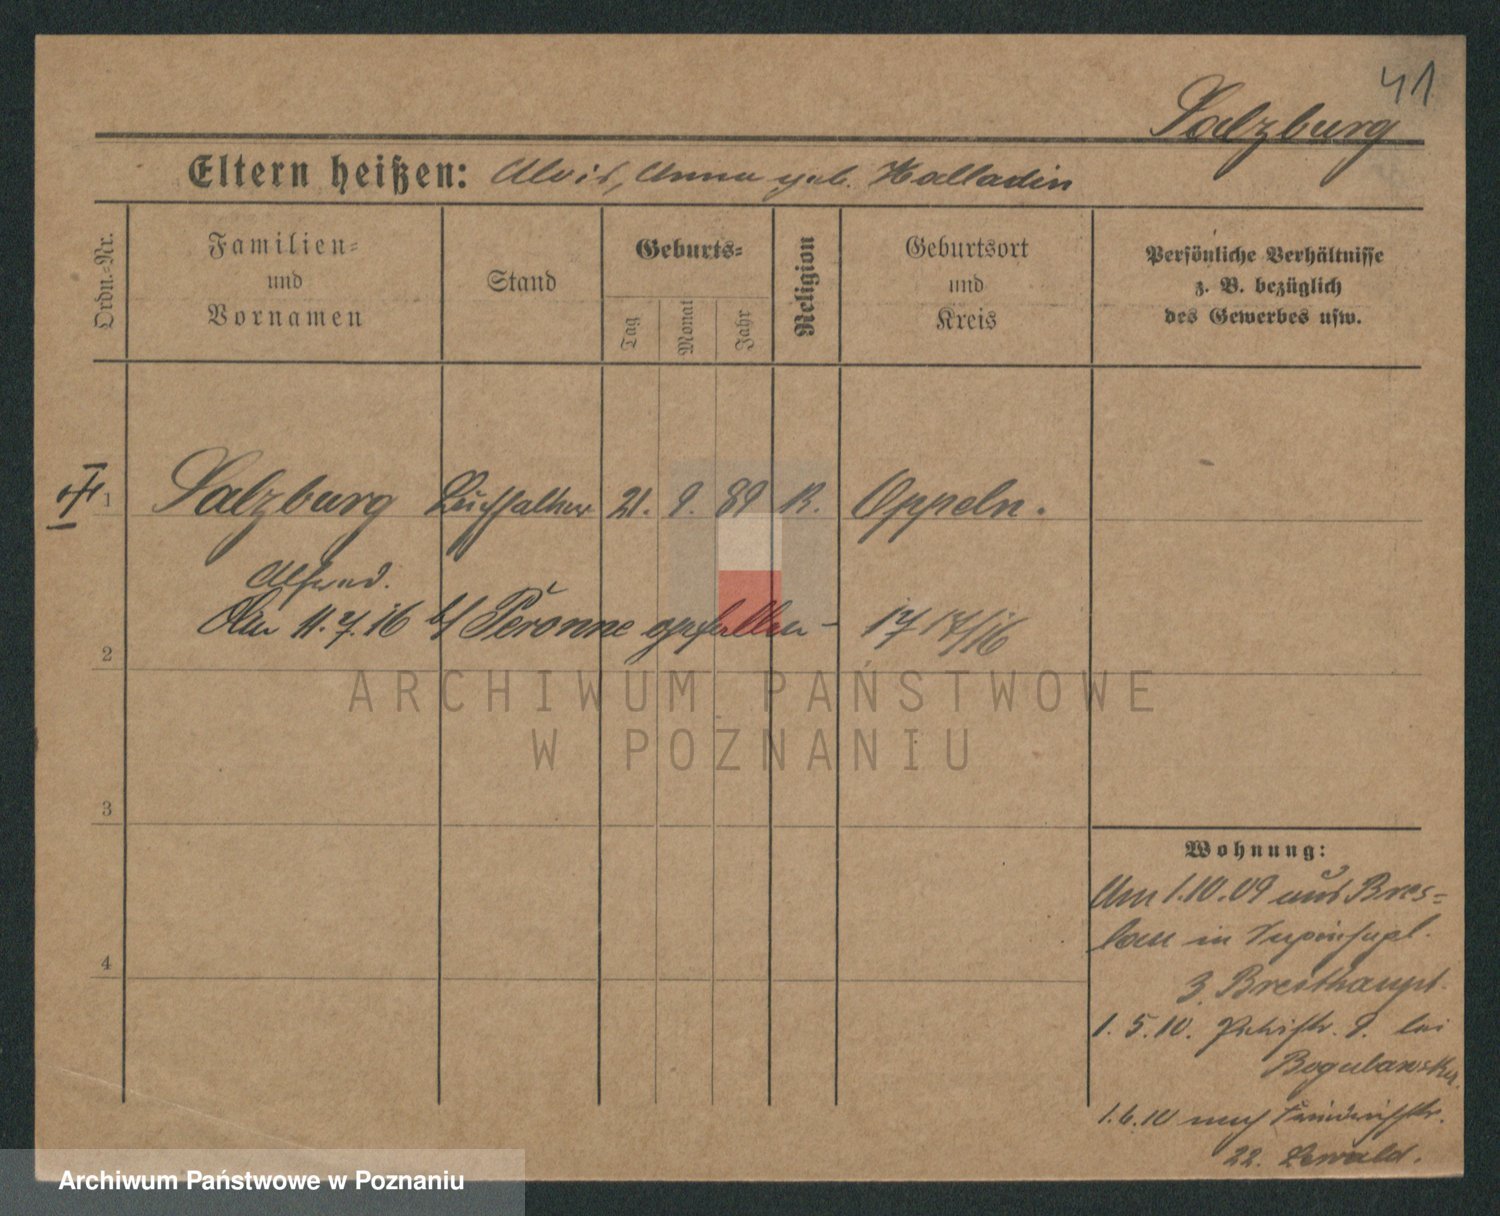 41
Salzburg
Eltern heißen: Alois, Anna geb. Halladin
Ordn.-Nr.
Familien-
und
Vornamen
Stand
Geburts-
Tag
Monat
Jahr
Religion
Geburtsort
und
Kreis
Persönliche Verhältnisse
z. B. bezüglich
des Gewerbes usw.
1 Salzburg Buchhalter 21. 9. 89 R. Oppeln.
Alfred.
Am 11.7.16 b/ Péronne gefallen - 17/16
2
ARCHIWUM PAŃSTWOWE
W POZNANIU
3
4
Wohnung:
Am 1.10.09 aus Bres-
lau in
3. Breithaupt.
1.5.10. Petristr. 9. bei
Bogulawski.
1.6.10 nach
22. Lewald.
Archiwum Państwowe w Poznaniu